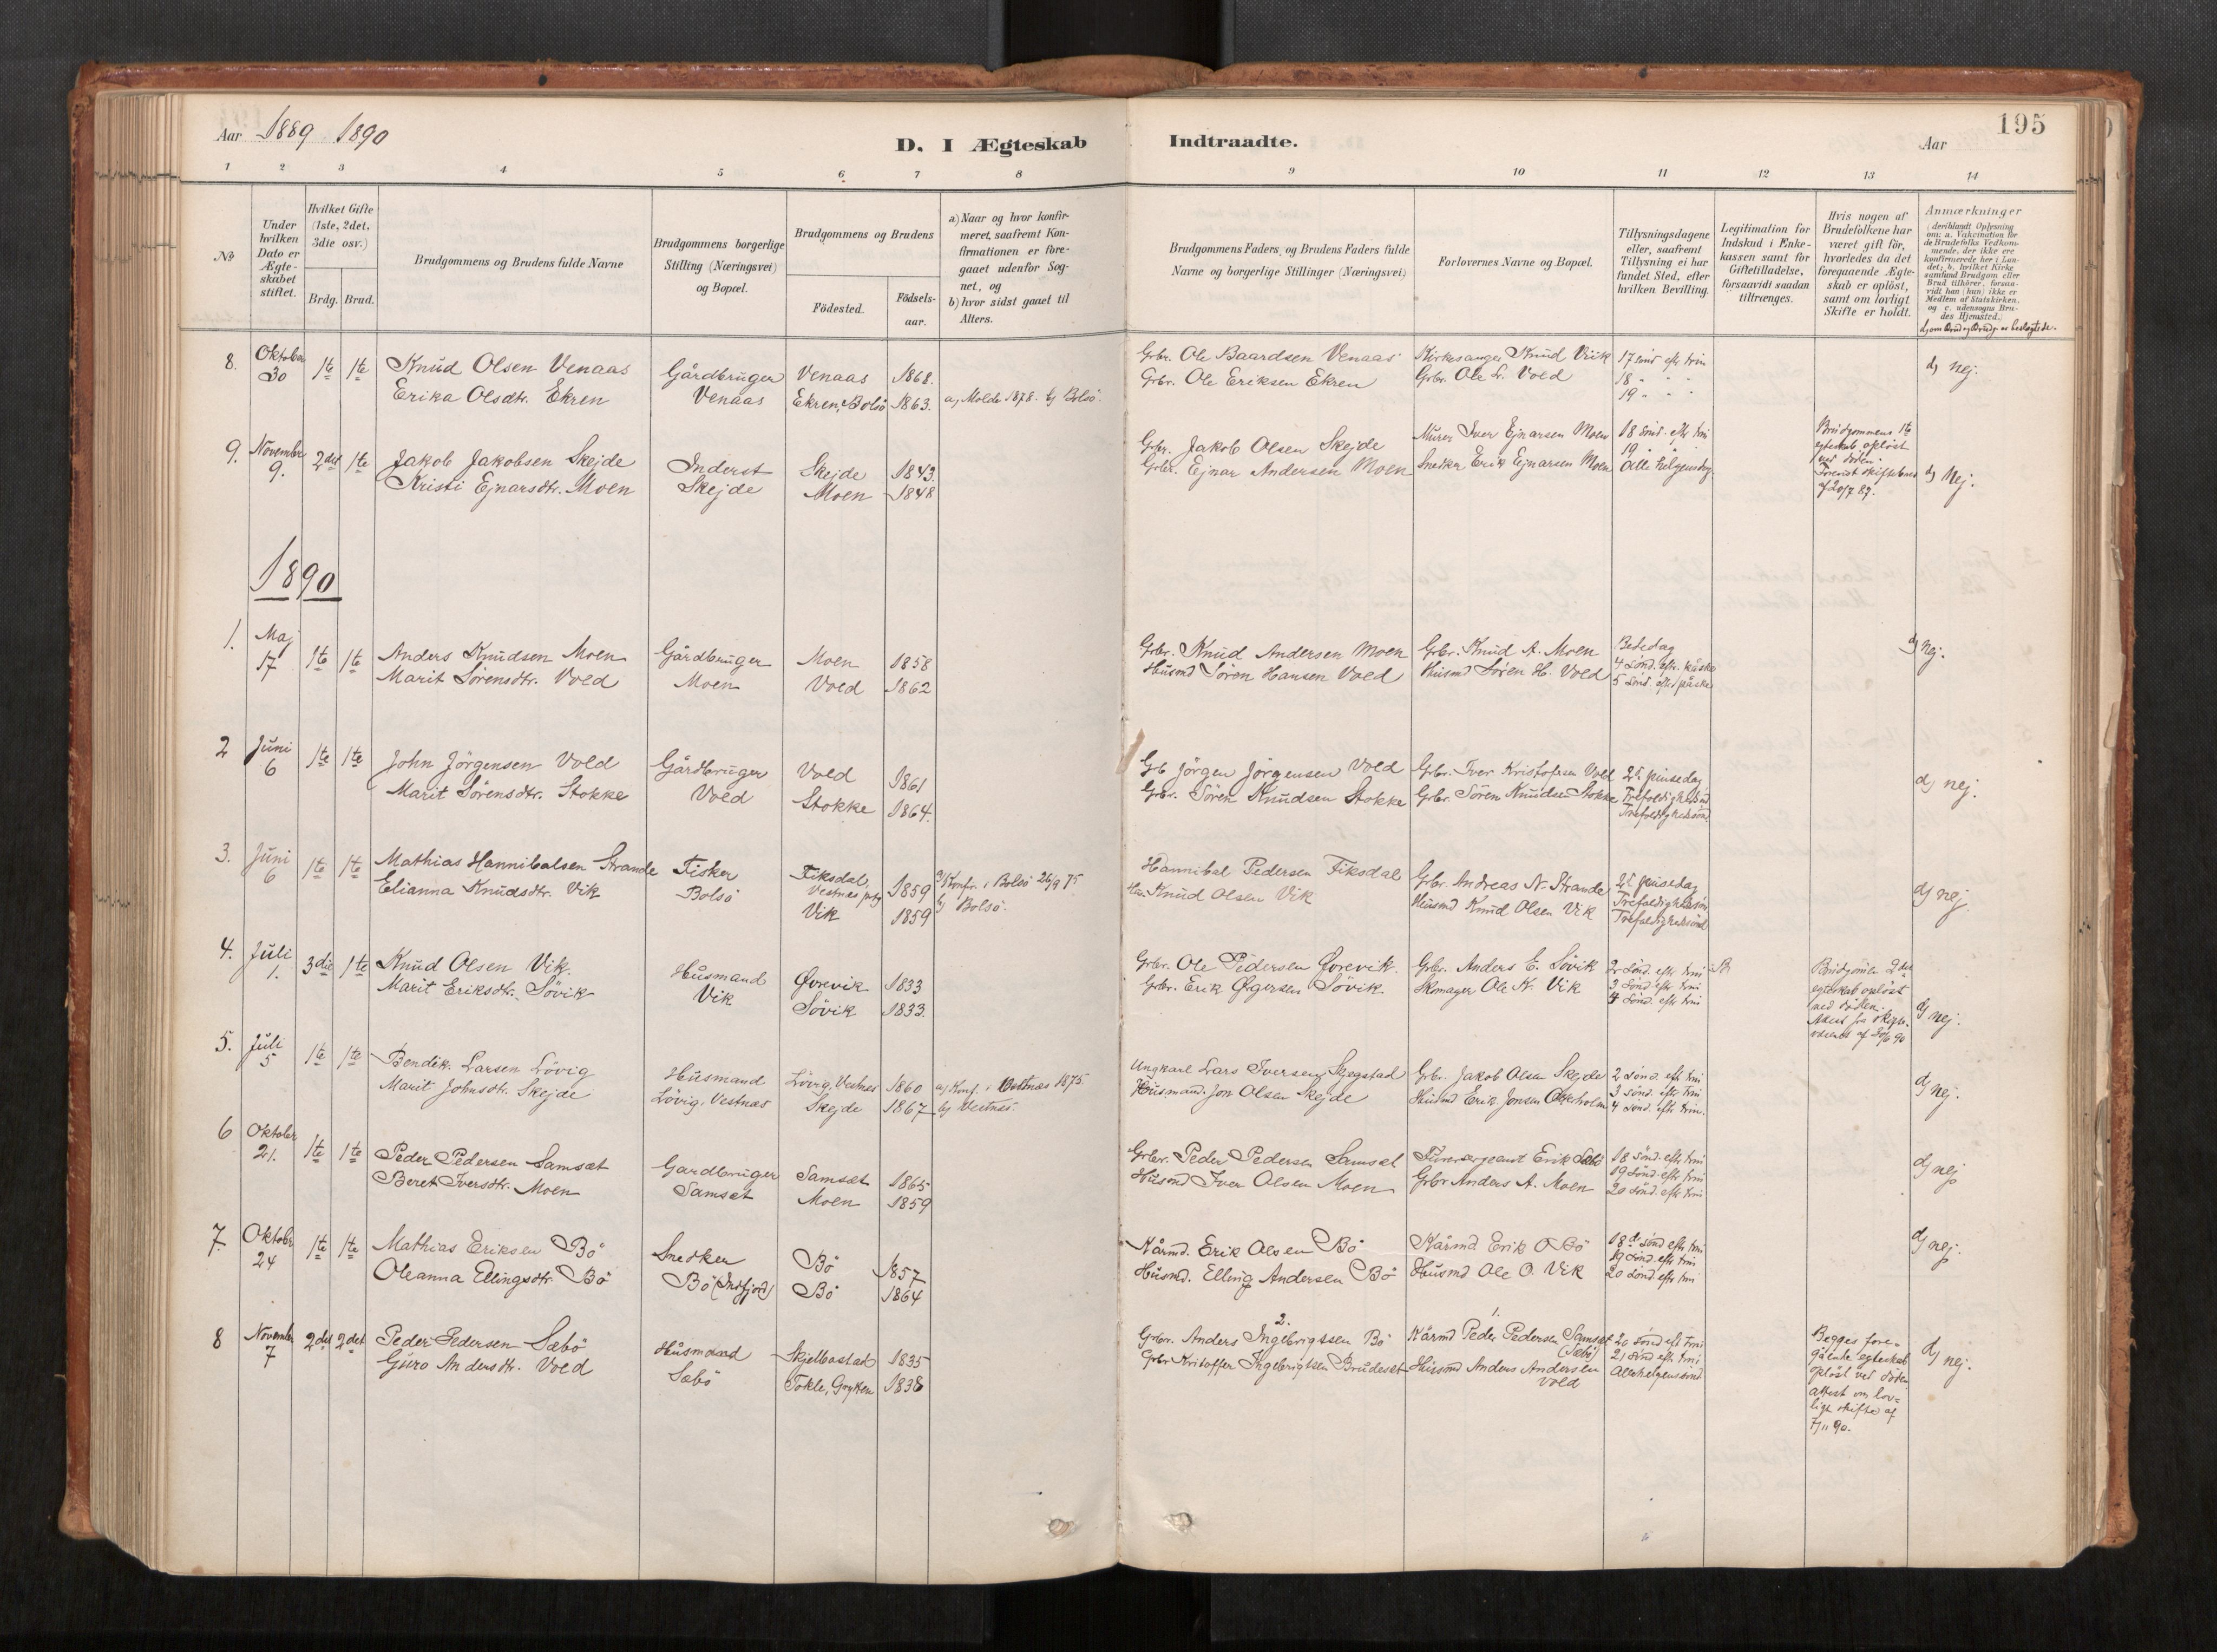 195
Aar 1889 1890
D. I Ægteskab Indtraadte.
Aar
1 2 3 4 5 6 7 8 9 10 11 12 13 14
No
Under hvilken Dato er Ægteskabet stiftet.
Hvilket Gifte (1ste, 2det, 3die osv.)
Brdg. Brud.
Brudgommens og Brudens fulde Navne
Brudgommens borgerlige Stilling (Næringsvei) og Bopæl.
Brudgommens og Brudens
Födested.
Födsels-aar.
a) Naar og hvor konfir-
meret, saafremt Kon-
firmationen er fore-
gaaet udenfor Sog-
net, og
b) hvor sidst gaaet til
Alters.
Brudgommens Faders og Brudens Faders fulde
Navne og borgerlige Stillinger (Næringsvei)
Forlovernes Navne og Bopæl.
Tillysningsdagene
eller, saafremt
Tillysning ei har
fundet Sted, efter
hvilken Bevilling.
Legitimation for
Indskud i Enke-
kassen samt for
Giftetilladelse,
forsaavidt saadan
tiltrænges.
Hvis nogen af
Brudefolkene har
været gift för,
hvorledes da det
foregaaende Ægte-
skab er oplöst,
samt om lovligt
Skifte er holdt.
Anmærkninger
(deriblandt Oplysning
om: a. Vakcination for
de Brudefolks Vedkom-
mende, der ikke ere
konfirmerede her i Lan-
det; b. hvilket Kirke
samfund Brudgom eller
Brud tilhörer, forsaa-
vidt han (hun) ikke er
Medlem af Statskirken,
og c. udensogns Bru-
des Hjemsted.)
d) om Brud og Brudg. er beslægtede.
8. Oktober 30 1te 1te Knud Olsen Venaas Gårdbruger Venaas 1868. Grbr. Ole Baardsen Venaas Kirkesanger Knud Viik 17 sönd eft trin d) nej.
Erika Olsdtr. Ekren Venaas Ekren, Bolsö 1863. a) Molde 1878. b) Bolsö. Grbr. Ole Eriksen Ekren Grbr. Ole Vold 18 " " "
19 " " "
9. Novembr 9. 2det 1te Jakob Jakobsen Skejde Inderst Skejde 1843. Grbr. Jakob Olsen Skejde Murer Iver Ejnarsen Moen 18 sönd. eft trin
Kristi Ejnarsdtr. Moen Skejde Moen 1848 Grbr. Ejnar Andersen Moen Snedker Erik Ejnarsen Moen 19 " "
Alle helgensdag.
Brudgommens 1te
egteskab oplöst
ved döden.
af 20/7 89.
d) Nej.
1890
1. Maj 17 1te 1te Anders Knudsen Moen Gårdbruger Moen 1858 Grbr. Knud Andersen Moen Grbr. Knud A. Moen Bededag d) nej.
Marit Sörensdtr. Vold Moen Vold 1862 Husmd Sören Hansen Vold Husmd Sören H. Vold 4 sönd. eftr. påske
5 sönd. efter påske
2 Juni 6 1te 1te John Jörgensen Vold Gårdbruger Vold 1861 Gb Jörgen Jörgensen Vold Grbr. Iver Kristofersen Vold 2d pinsedag d) nej.
Marit Sörensdtr. Stokke Vold Stokke 1864. Grbr. Sören Knudsen Stokke Grbr. Sören Knudsen Stokke Trefoldighedsönd
Trefoldighedssönd.
3. Juni 6 1te 1te Mathias Hannibalsen Strande Fisker Fiksdal, Vestnæs prg 1859 a) Konfr. i Bolsö 26/9 75 Hannibal Pedersen Fiksdal Grbr. Andreas N. Strande 2d pinsedag d) nej.
Elianna Knudsdtr. Vik Bolsö Vik 1859 b) Bolsö. Knud Olsen Vik Husmd Knud Olsen Vik Trefoldighedssön
Trefoldighedssönd
4. Juli 1. 3die 1te Knud Olsen Vik. Husmand Övrevik 1833 Grbr. Ole Pedersen Övrevik. Grbr. Anders E. Sövik 2 sönd. eft trin
Marit Eriksdtr. Sövik Vik Sövik 1833. Grbr. Erik Örgersen Sövik. Skomager Ole K. Vik 3 sönd. eft trin
4 sönd. eft trin
Brudgomen 2det
egteskab oplöst
ved döden.
Attest fra skifte-
af 30/6 90
d) nej.
5. Juli 5 1te 1te Bendik Larsen Lövig Husmand Lövig, Vestnes 1860 a) Konf. i Vestnæs 1875 Ungkarl Lars Iversen Skjegstad Grbr. Jakob Olsen Skejde 2 sönd. eft trin d) nej.
Marit Johnsdtr. Skejde Lövig, Vestnæs Skejde 1867 b) Vestnes. Husmand. Jon Olsen Skejde Husmd Erik Jonsen 3 sönd. eft trin
4 sönd. eft trin.
6 Oktober 21. 1te 1te Peder Pedersen Samsæt Gardbruger Samsæt 1865 Grbr. Peder Pedersen Samset Furersergeant Erik Sæbö 18 sönd. eft trin d) nej
Beret Iversdtr. Moen Samset Moen 1859 Husmd Iver Olsen Moen Grbr Anders A. Moen 19 sönd. eft trin
20 sönd. eft trin
7. Oktobr 24 1te 1te Mathias Eriksen Bö Snedker Bö 1857 Kårmd. Erik Olsen Bö Kårmd Erik O Bö 18d sönd eft trin d) nej.
Oleanna Ellingsdtr. Bö Bö (Indfjord) Bö 1864 Husmd. Elling Andersen Bö Husmd Ole O. Vik 19 sönd. eft trin
20 sönd eft trin
8 Novembr 7 2det 2det Peder Pedersen Sæbö Husmand Skjelbostad 1835 2. Grbr. Anders Ingebrigtsen Bö 1. Kårmd Peder Pedersen Samset (Sæbö) 20 sönd eft trin
Guro Andersdtr. Vold Sæbö Tokle, Grytten 1838 Grbr Kristoffer Ingebrigtsen Brudeset Husmd Anders Andersen Vold 21 sönd eft trin
Allehelgenssönd
Begges fore-
gående egteskab
oplöst ved döden
attest om lov-
ligt skifte af
7/11 90.
d) nej.